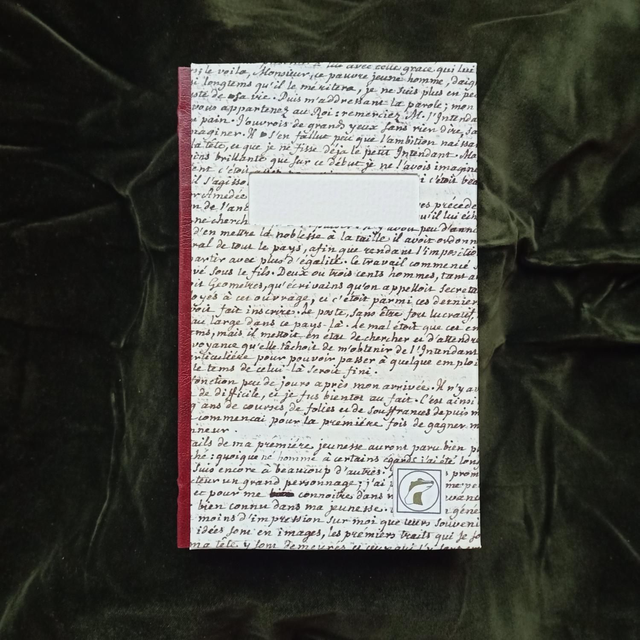 le voilà, Monsieur, ce pauvre jeune homme, daig
longtems qu'il le méritera, je ne suis plus en pe
vie. Puis m'addressant la parole; mon
vous appartenez au Roi: remerciez M. l'Intenda
pain. J'ouvrois de grands yeux sans rien dire, sa
maginer. Il s'en fallut peu que l'ambition naissa
la tête, et que je ne fisse déja le petit Intendant. Ma
brillante que sur ce début je ne l'avois imagin
ent c'étoit
il s'agisso i c'étoit
Amédée
n de l'ant précéde
ne cherch u'il lui
avoit peu d'ann
d'en mettre la noblesse à la taille, il avoit ordonn
ral de tout le pays, afin que rendant l'impositio
artir avec plus d'égalité. Ce travail commencé
vé sous le fils. Deux ou trois cents hommes, tant a
oit Géometres, qu'écrivains qu'on appelloit Secreta
oyés à cet ouvrage, et c'étoit parmi ces dernier
voit fait inscrire. Le poste, sans être fort lucratif
au large dans ce pays-là. Le mal étoit que cet em
ms, mais il mettoit en état de chercher et d'attend
voyance qu'elle tâchoit de m'obtenir de l'Intendan
particulière pour pouvoir passer à quelque emploi
le tems de celui-là seroit fini.
fonction peu de jours après mon arrivée. Il n'y a
de difficile, et je fus bientôt au fait. C'est ainsi
q ans de courses, de folies et de souffrances depuis m
commençai pour la prémiére fois de gagner m
nneur.
ails de ma prémiére jeunesse auront paru bien p
ché: quoique né homme à certains égards, j'ai été lon
suis encore à beaucoup d'autres. prom
cteur un grand personnage; j'ai me pe
et pour me connoitre dans
bien connu dans ma jeunesse.
moins d'impression sur moi que leurs souveni
idées sont en images, les prémiers traits qui se
ma tête y sont demeurés, et ceux qui